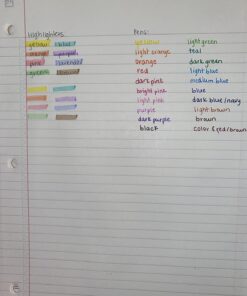 Highlighters: Pens:
yellow blue yellow light green
orange purple light orange teal
pink lavender orange dark green
green red light blue
dark pink medium blue
bright pink blue
light pink dark blue/navy
purple light brown
dark purple brown
black color 8 red/brown